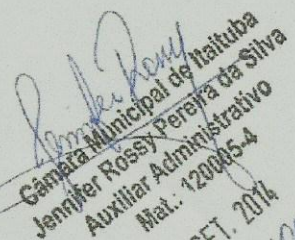 Jennifer Rossy
Câmara Municipal de Itaituba
Jennifer Rossy Pereira da Silva
Auxiliar Administrativo
Mat.: 120005-4
SET. 2014